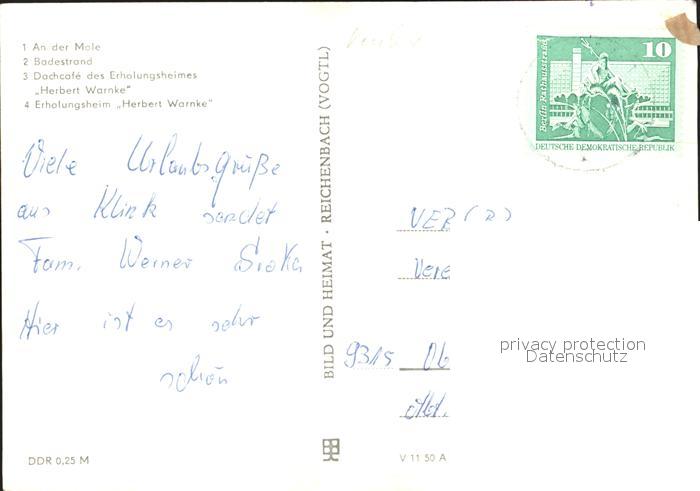 1 An der Mole
2 Badestrand
3 Dachcafé des Erholungsheimes
„Herbert Warnke"
4 Erholungsheim „Herbert Warnke"
Viele Urlaubsgrüße
aus Klink sendet
Fam. Werner
Hier ist es sehr
schön
DDR 0,25 M
BILD UND HEIMAT · REICHENBACH (VOGTL)
10
Berlin, Rathausstraße
DEUTSCHE DEMOKRATISCHE REPUBLIK
VEB
9315
privacy protection
Datenschutz
V 11 50 A